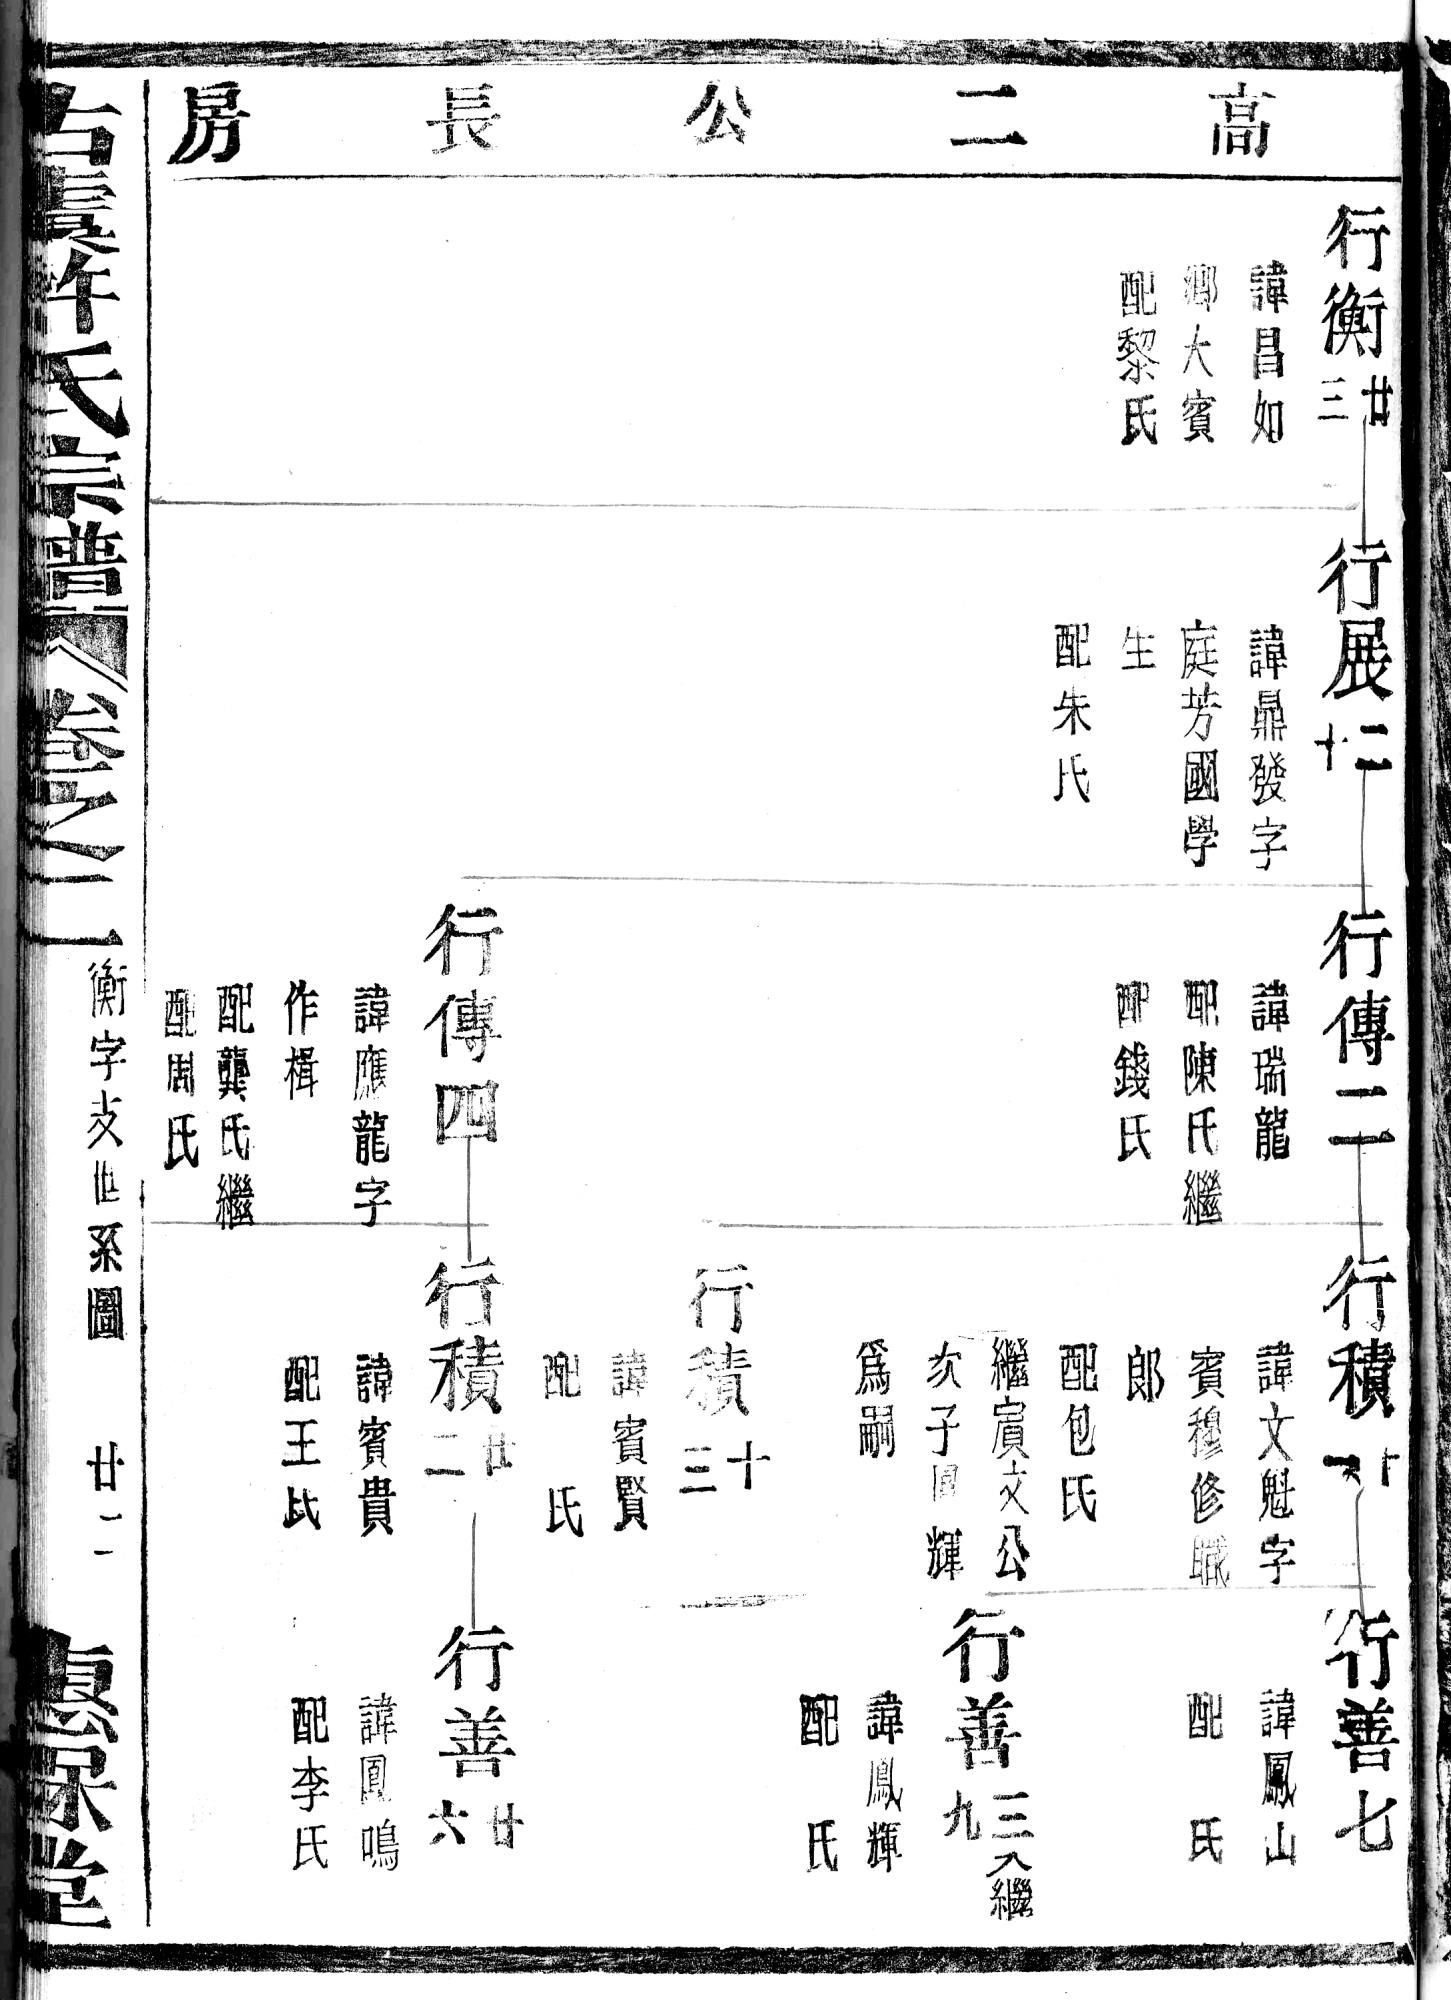 高二公長房
行衡廿三
諱昌如
鄉大賓
配黎氏
行展二十
諱鼎發字
庭芳國學
生
配朱氏
行傳二
諱瑞龍
配陳氏繼
配錢氏
行傳四
諱應龍字
作楫
配龔氏繼
配周氏
行積十一
諱文魁字
賓穆修職
郎
配包氏
繼賓文公
次子鳳輝
爲嗣
行積十三
諱賓賢
配 氏
行積廿二
諱賓貴
配王氏
行善七
諱鳳山
配 氏
行善三九入繼
諱鳳輝
配 氏
行善廿六
諱鳳鳴
配李氏
古虞許氏宗譜 卷之二
衡字支世系圖
廿二
惠保堂